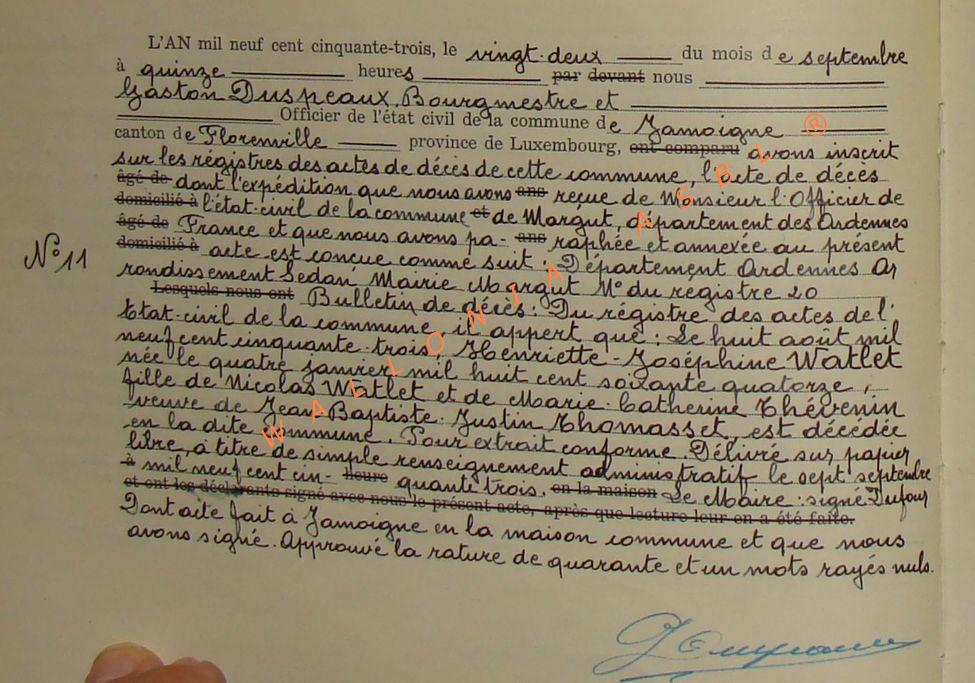 L'AN mil neuf cent cinquante-trois, le vingt-deux du mois de septembre
à quinze heures par devant nous
Gaston Duspeaux, Bourgmestre et
Officier de l'état civil de la commune de Jamoigne
canton de Florenville province de Luxembourg, ont comparu avons inscrit
sur les régistres des actes de décès de cette commune, l'acte de décès
âgé de dont l'expédition que nous avons ans reçue de Monsieur l'Officier de
domicilié à l'état-civil de la commune et de Margut, département des Ardennes
âgé de France et que nous avons pa- ans raphée et annexée au présent
domicilié à acte est conçue comme suit : Département Ardennes Ar
N° 11
rondissement Sedan Mairie Margut N° du registre 20
Lesquels nous ont Bulletin de décès : Du régistre des actes de l'
Etat-civil de la commune il appert que : Le huit août mil
neuf cent cinquante-trois, Henriette-Joséphine Watlet
née le quatre janvier mil huit cent soixante quatorze,
fille de Nicolas Watlet et de Marie-Catherine Thévenin
veuve de Jean Baptiste-Justin Thomasset, est décédée
en la dite commune. Pour extrait conforme. Délivré sur papier
libre, à titre de simple renseignement administratif le sept septembre
à mil neuf cent cin- heure quante trois. en la maison Le Maire : signé Dufour
et ont les déclarants signé avec nous le présent acte, après que lecture leur en a été faite.
Dont acte fait à Jamoigne en la maison commune et que nous
avons signé. Approuvé la rature de quarante et un mots rayés nuls.
WALLONIA ASBL ®